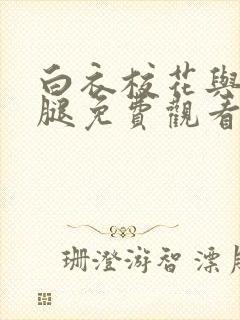 白衣校花與
腿免費觀看
珊澄游智 漂